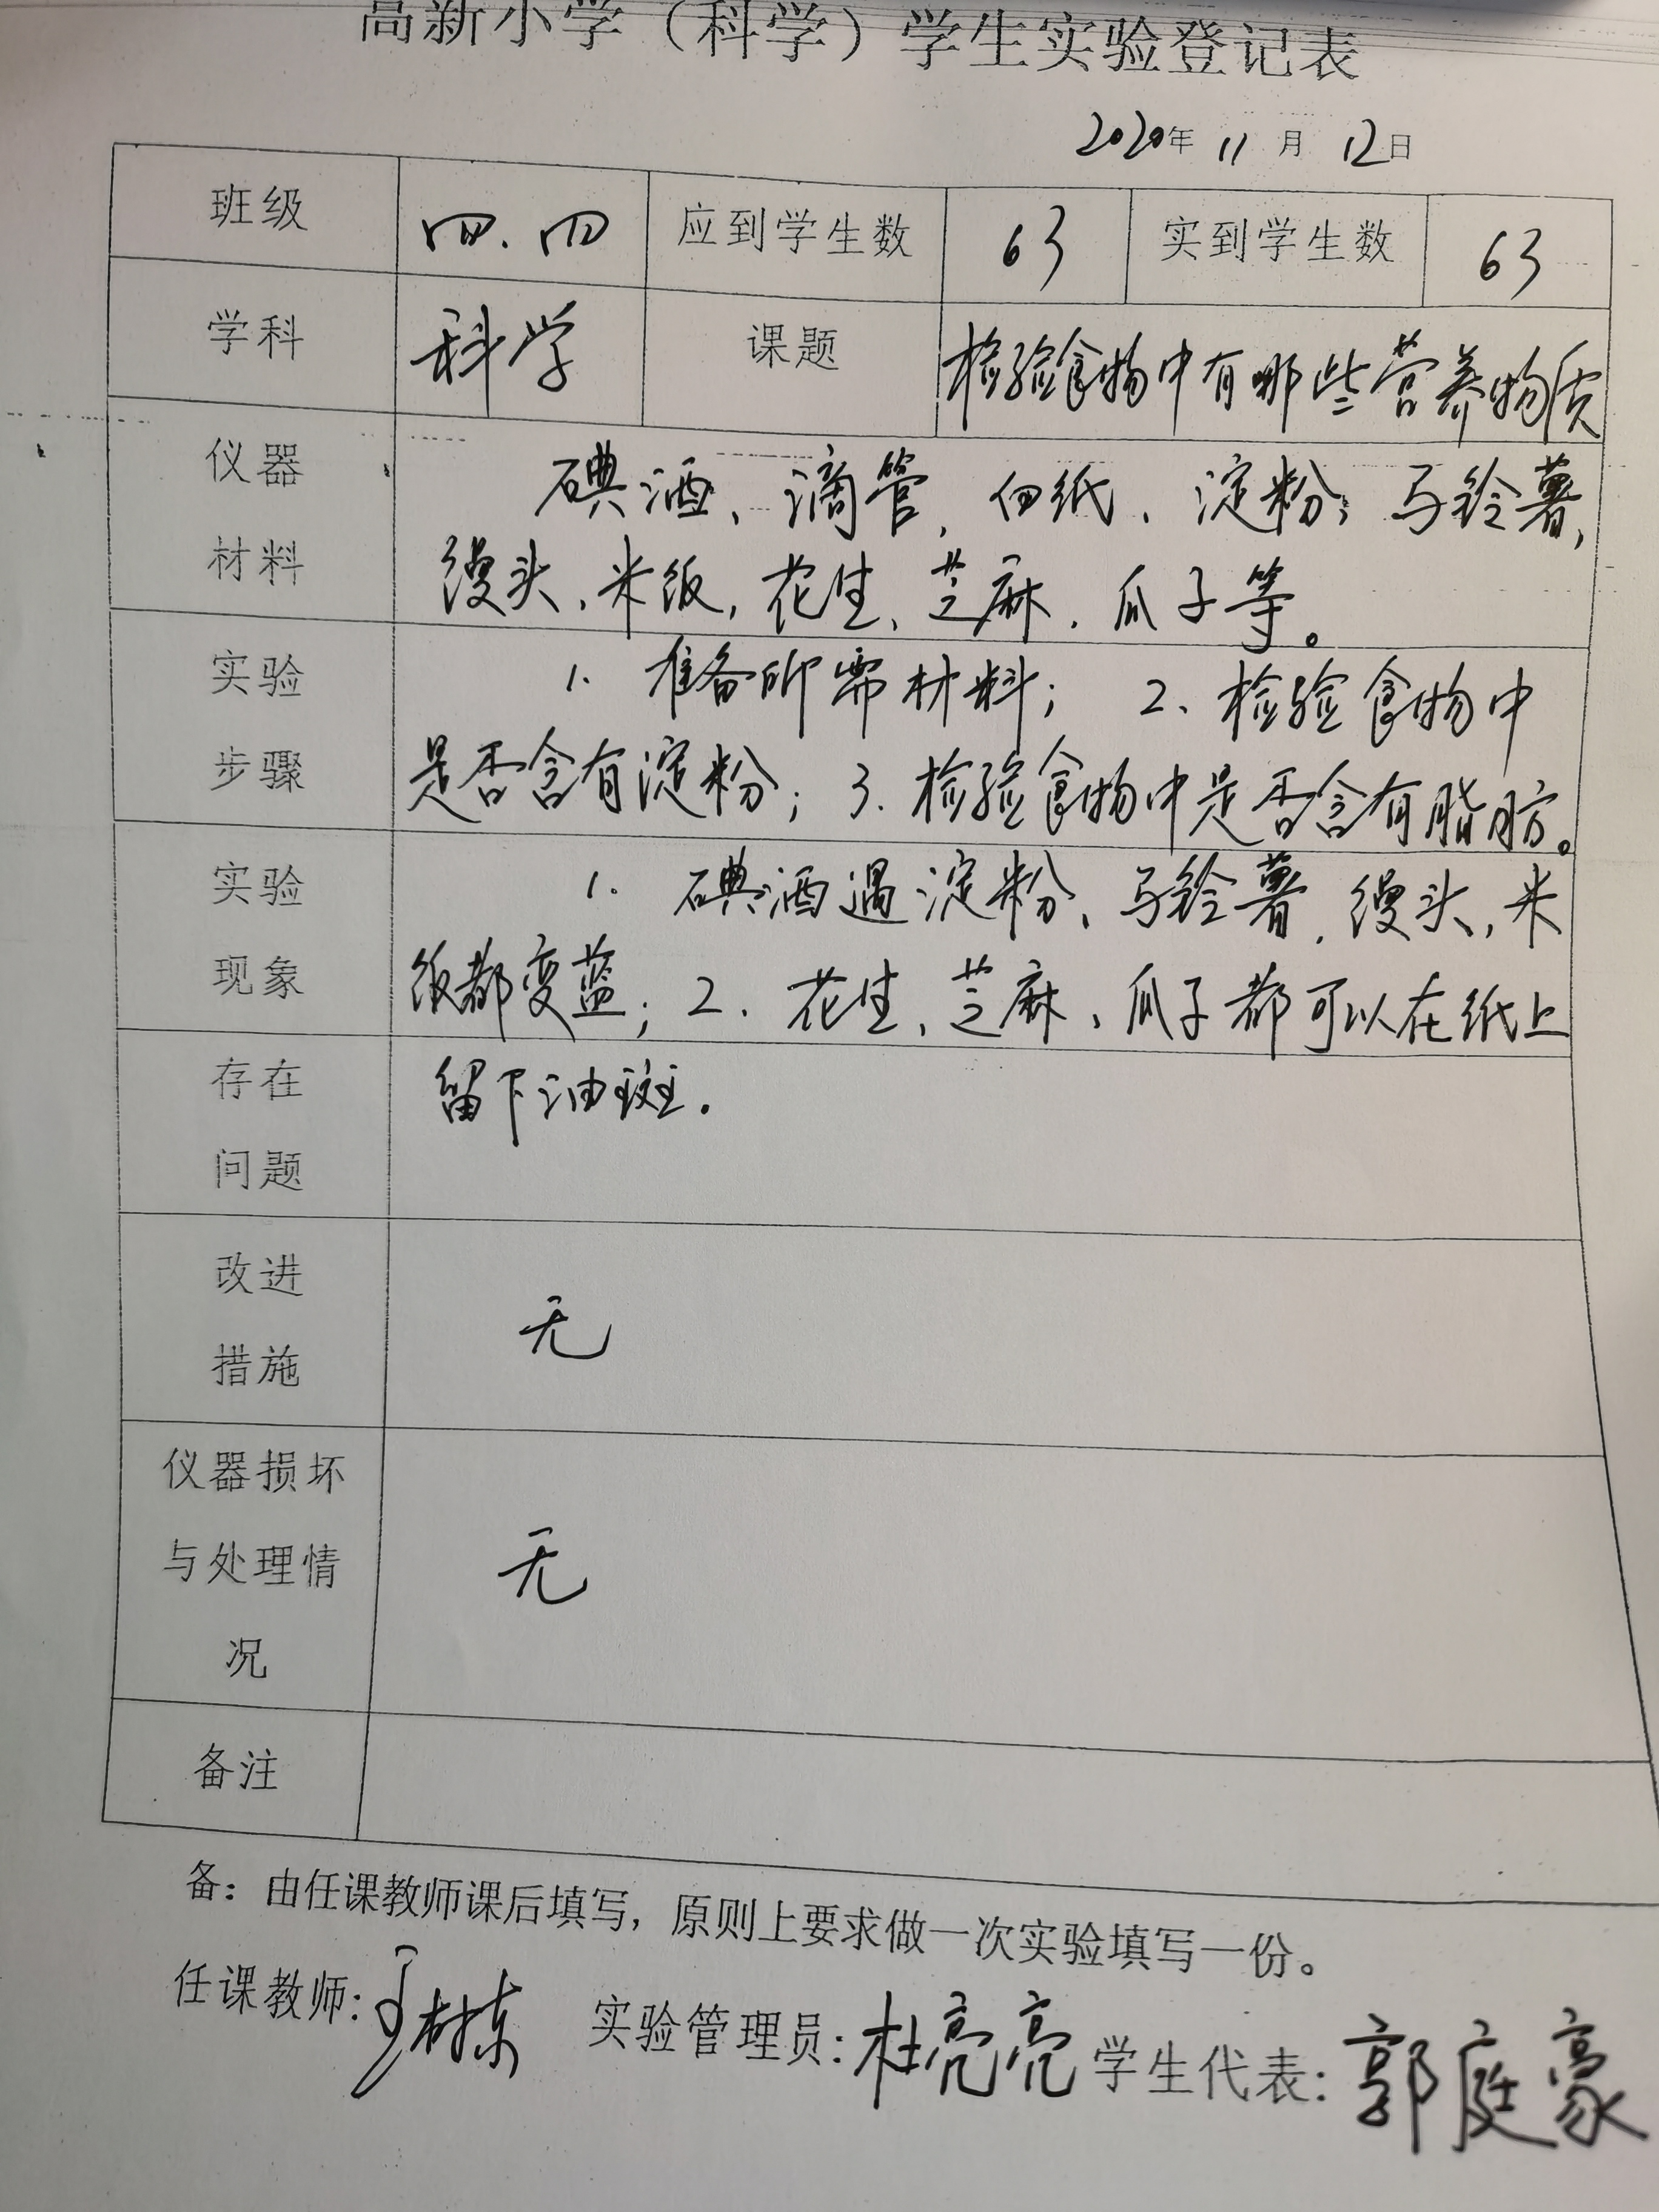 高新小学（科学）学生实验登记表
2020年 11 月 12日
班级 四.四 应到学生数 63 实到学生数 63
学科 科学 课题 检验食物中有哪些营养物质
仪器材料 碘酒、滴管、白纸、淀粉、马铃薯、
馒头、米饭、花生、芝麻、瓜子等。
实验步骤 1. 准备所需材料； 2、检验食物中
是否含有淀粉；3.检验食物中是否含有脂肪。
实验现象 1. 碘酒遇淀粉、马铃薯、馒头、米
饭都变蓝；2. 花生、芝麻、瓜子都可以在纸上
存在问题 留下油斑.
改进措施 无
仪器损坏与处理情况 无
备注
备：由任课教师课后填写，原则上要求做一次实验填写一份。
任课教师: 实验管理员:杜亮亮 学生代表:郭庭豪